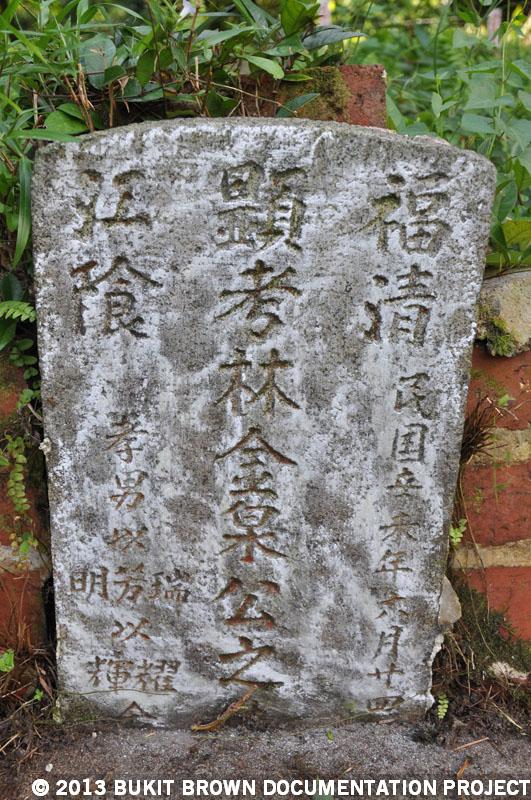 福清
民国辛未年六月廿四
顯考林金泉公之
江陰
孝男以芳以
瑞
明
耀
輝
© 2013 BUKIT BROWN DOCUMENTATION PROJECT